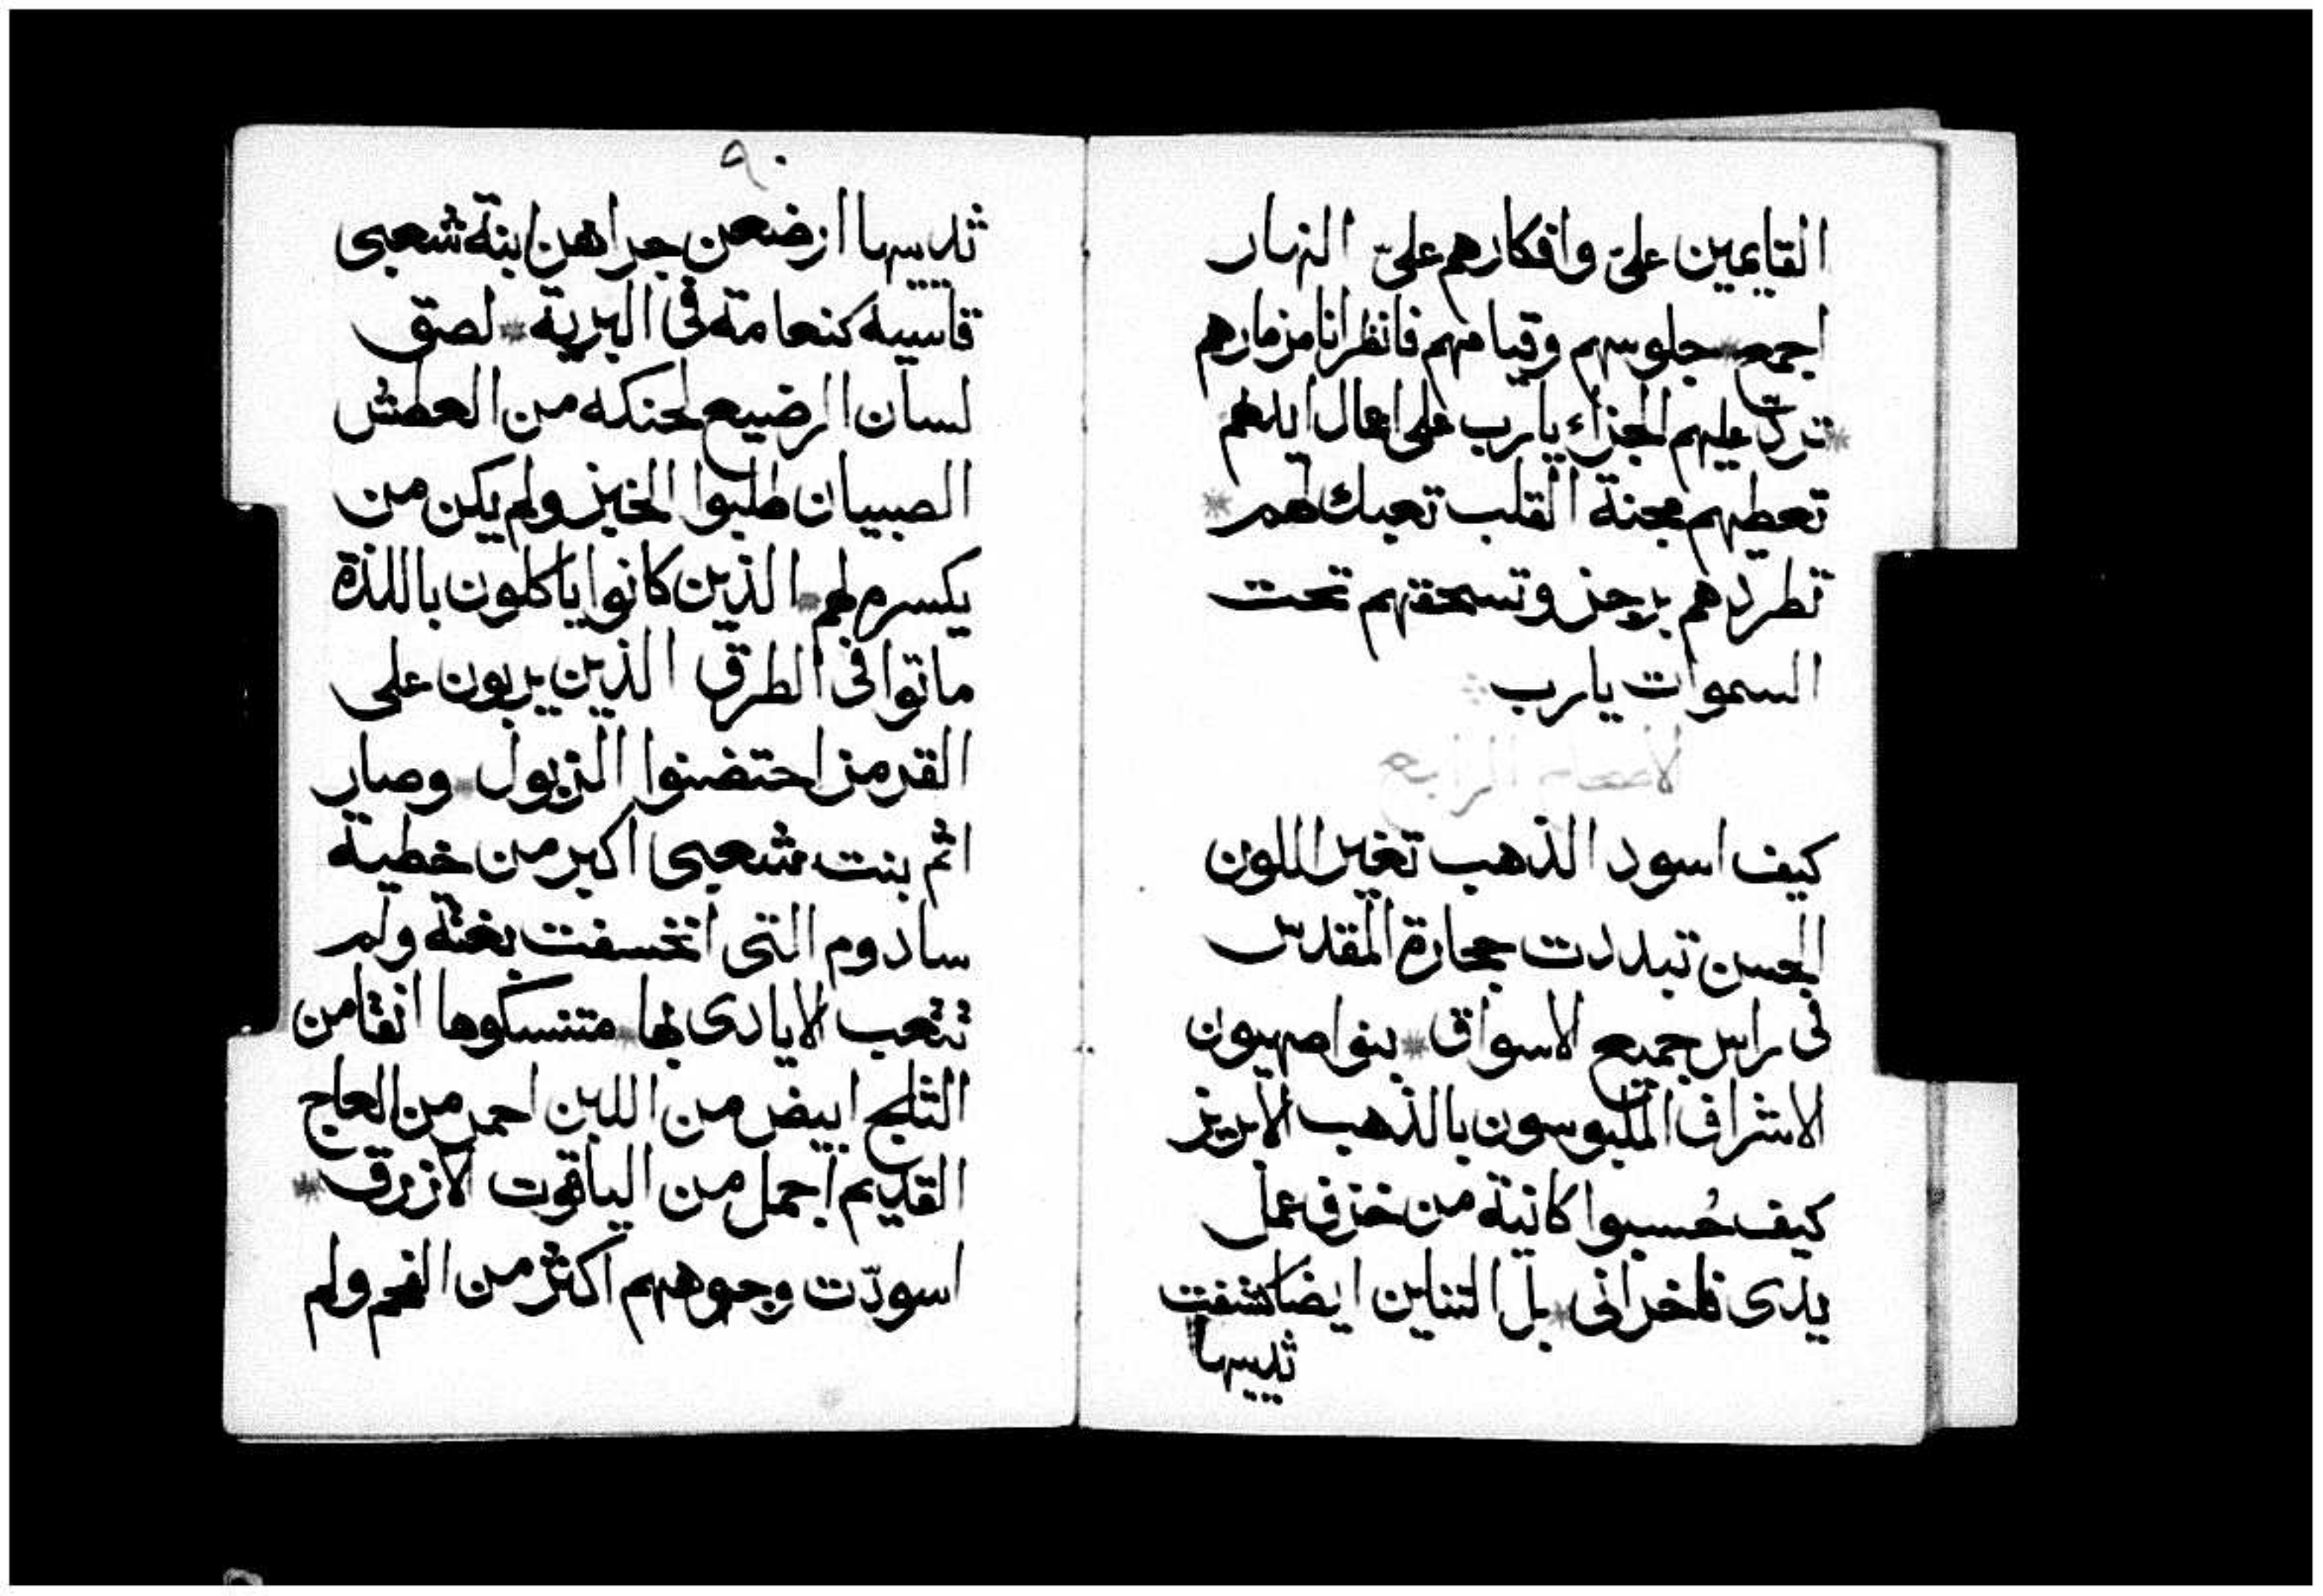 القايمين علىّ وافكارهم علىّ النهار
اجمع جلوسهم وقيامهم فانظر انا مزمارهم
تردّ عليهم الجزاء يا رب على اعمال ايديهم
تعطيهم مجنة القلب تعبك لهم
تطردهم برجز وتسحقهم تحت
السموات يا رب
الاصحاح الرابع
كيف اسود الذهب تغير اللون
الحسن تبددت حجارة المقدس
فى راس جميع الاسواق بنوا صهيون
الاشراف الملبوسون بالذهب الابريز
كيف حُسبوا كانية من خزف عمل
يدى فاخرانى بل التنانين ايضا كشفت
ثدييها
٩٠
ثدييها ارضعن جراهن ابنة شعبى
قاسيية كنعامة فى البرية لصق
لسان الرضيع لحنكه من العطش
الصبيان طلبوا الخبز ولم يكن من
يكسره لهم الذين كانوا ياكلون باللذة
ماتوا فى الطرق الذين يربون على
القرمز احتضنوا الزبول وصار
اثم بنت شعبى اكبر من خطية
سادوم التى انخسفت بغتة ولم
تتعب الايادى بها متنسكوها انقا من
الثلج ابيض من اللبن احمر من العاج
القديم اجمل من الياقوت الازرق
اسودّت وجوههم اكثر من الفحم ولم